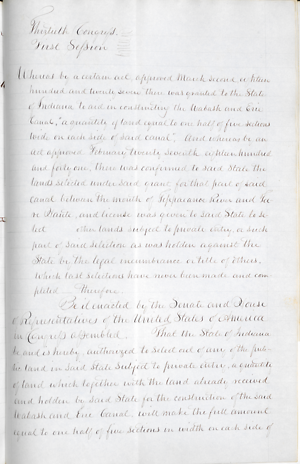 Thirtieth Congress.
First Session
Whereas by a certain act, approved March second eighteen
hundred and twenty seven there was granted to the State
of Indiana to aid in constructing the Wabash and Erie
Canal, "a quantity of land equal to one half of five sections
wide on each side of said canal", And whereas by an
act approved February twenty seventh eighteen hundred
and forty one, there was confirmed to said State the
lands selected under said grant for that part of said
canal between the mouth of Tippecanoe River and Ter
re Haute, and license was given to said State to se
lect other lands subject to private entry, as such
part of said selection as was holden against the
State by the legal incumbrance or title of others,
which last selections have never been made and com
pleted Therefore
Be it enacted by the Senate and House
of Representatives of the United States of America
in Congress assembled. That the State of Indiana
be and is hereby authorized to select out of any of the pub
lic land in said State subject to private entry, a quantity
of land which together with the land already received
and holden by said State for the construction of the said
Wabash and Erie Canal, will make the full amount
equal to one half of five sections in width on each side of